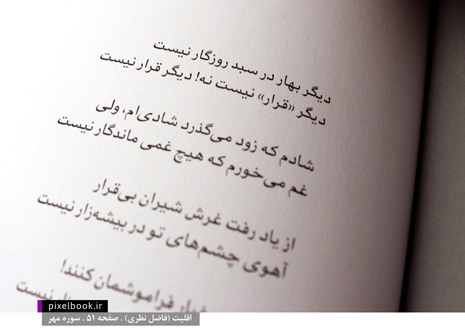 دیگر بهار در سبد روزگار نیست
دیگر «قرار» نیست نه! دیگر قرار نیست
شادم که زود می‌گذرد شادی‌ام، ولی
غم می‌خورم که هیچ غمی ماندگار نیست
از یاد رفت غرش شیران بی‌قرار
آهوی چشم‌های تو در بیشه‌زار نیست
فراموشمان کنند!
نیست
pixelbook.ir
اقلیت (فاضل نظری) . صفحه ۵۱ . سوره مهر